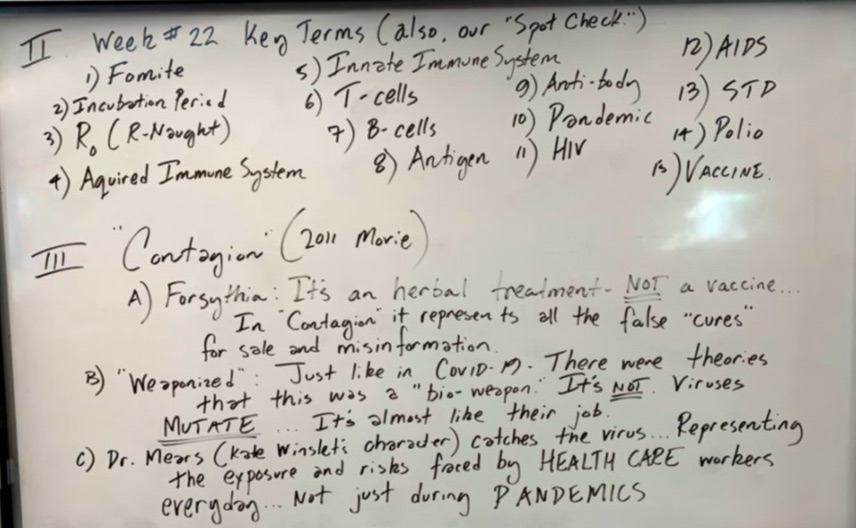 II Week #22 Key Terms (also, our "Spot Check.")
1) Fomite
2) Incubation Period
3) R₀ (R-Nought)
4) Aquired Immune System
5) Innate Immune System
6) T-cells
7) B-cells
8) Antigen
9) Anti-body
10) Pandemic
11) HIV
12) AIDS
13) STD
14) Polio
15) VACCINE.
III "Contagion" (2011 Movie)
A) Forsythia: It's an herbal treatment- NOT a vaccine...
In "Contagion" it represents all the false "cures"
for sale and misinformation.
B) "Weaponized": Just like in COVID-19. There were theories
that this was a "bio-weapon." It's NOT. Viruses
MUTATE... It's almost like their job.
C) Dr. Mears (Kate Winslet's character) catches the virus... Representing
the exposure and risks faced by HEALTH CARE workers
everyday... Not just during PANDEMICS